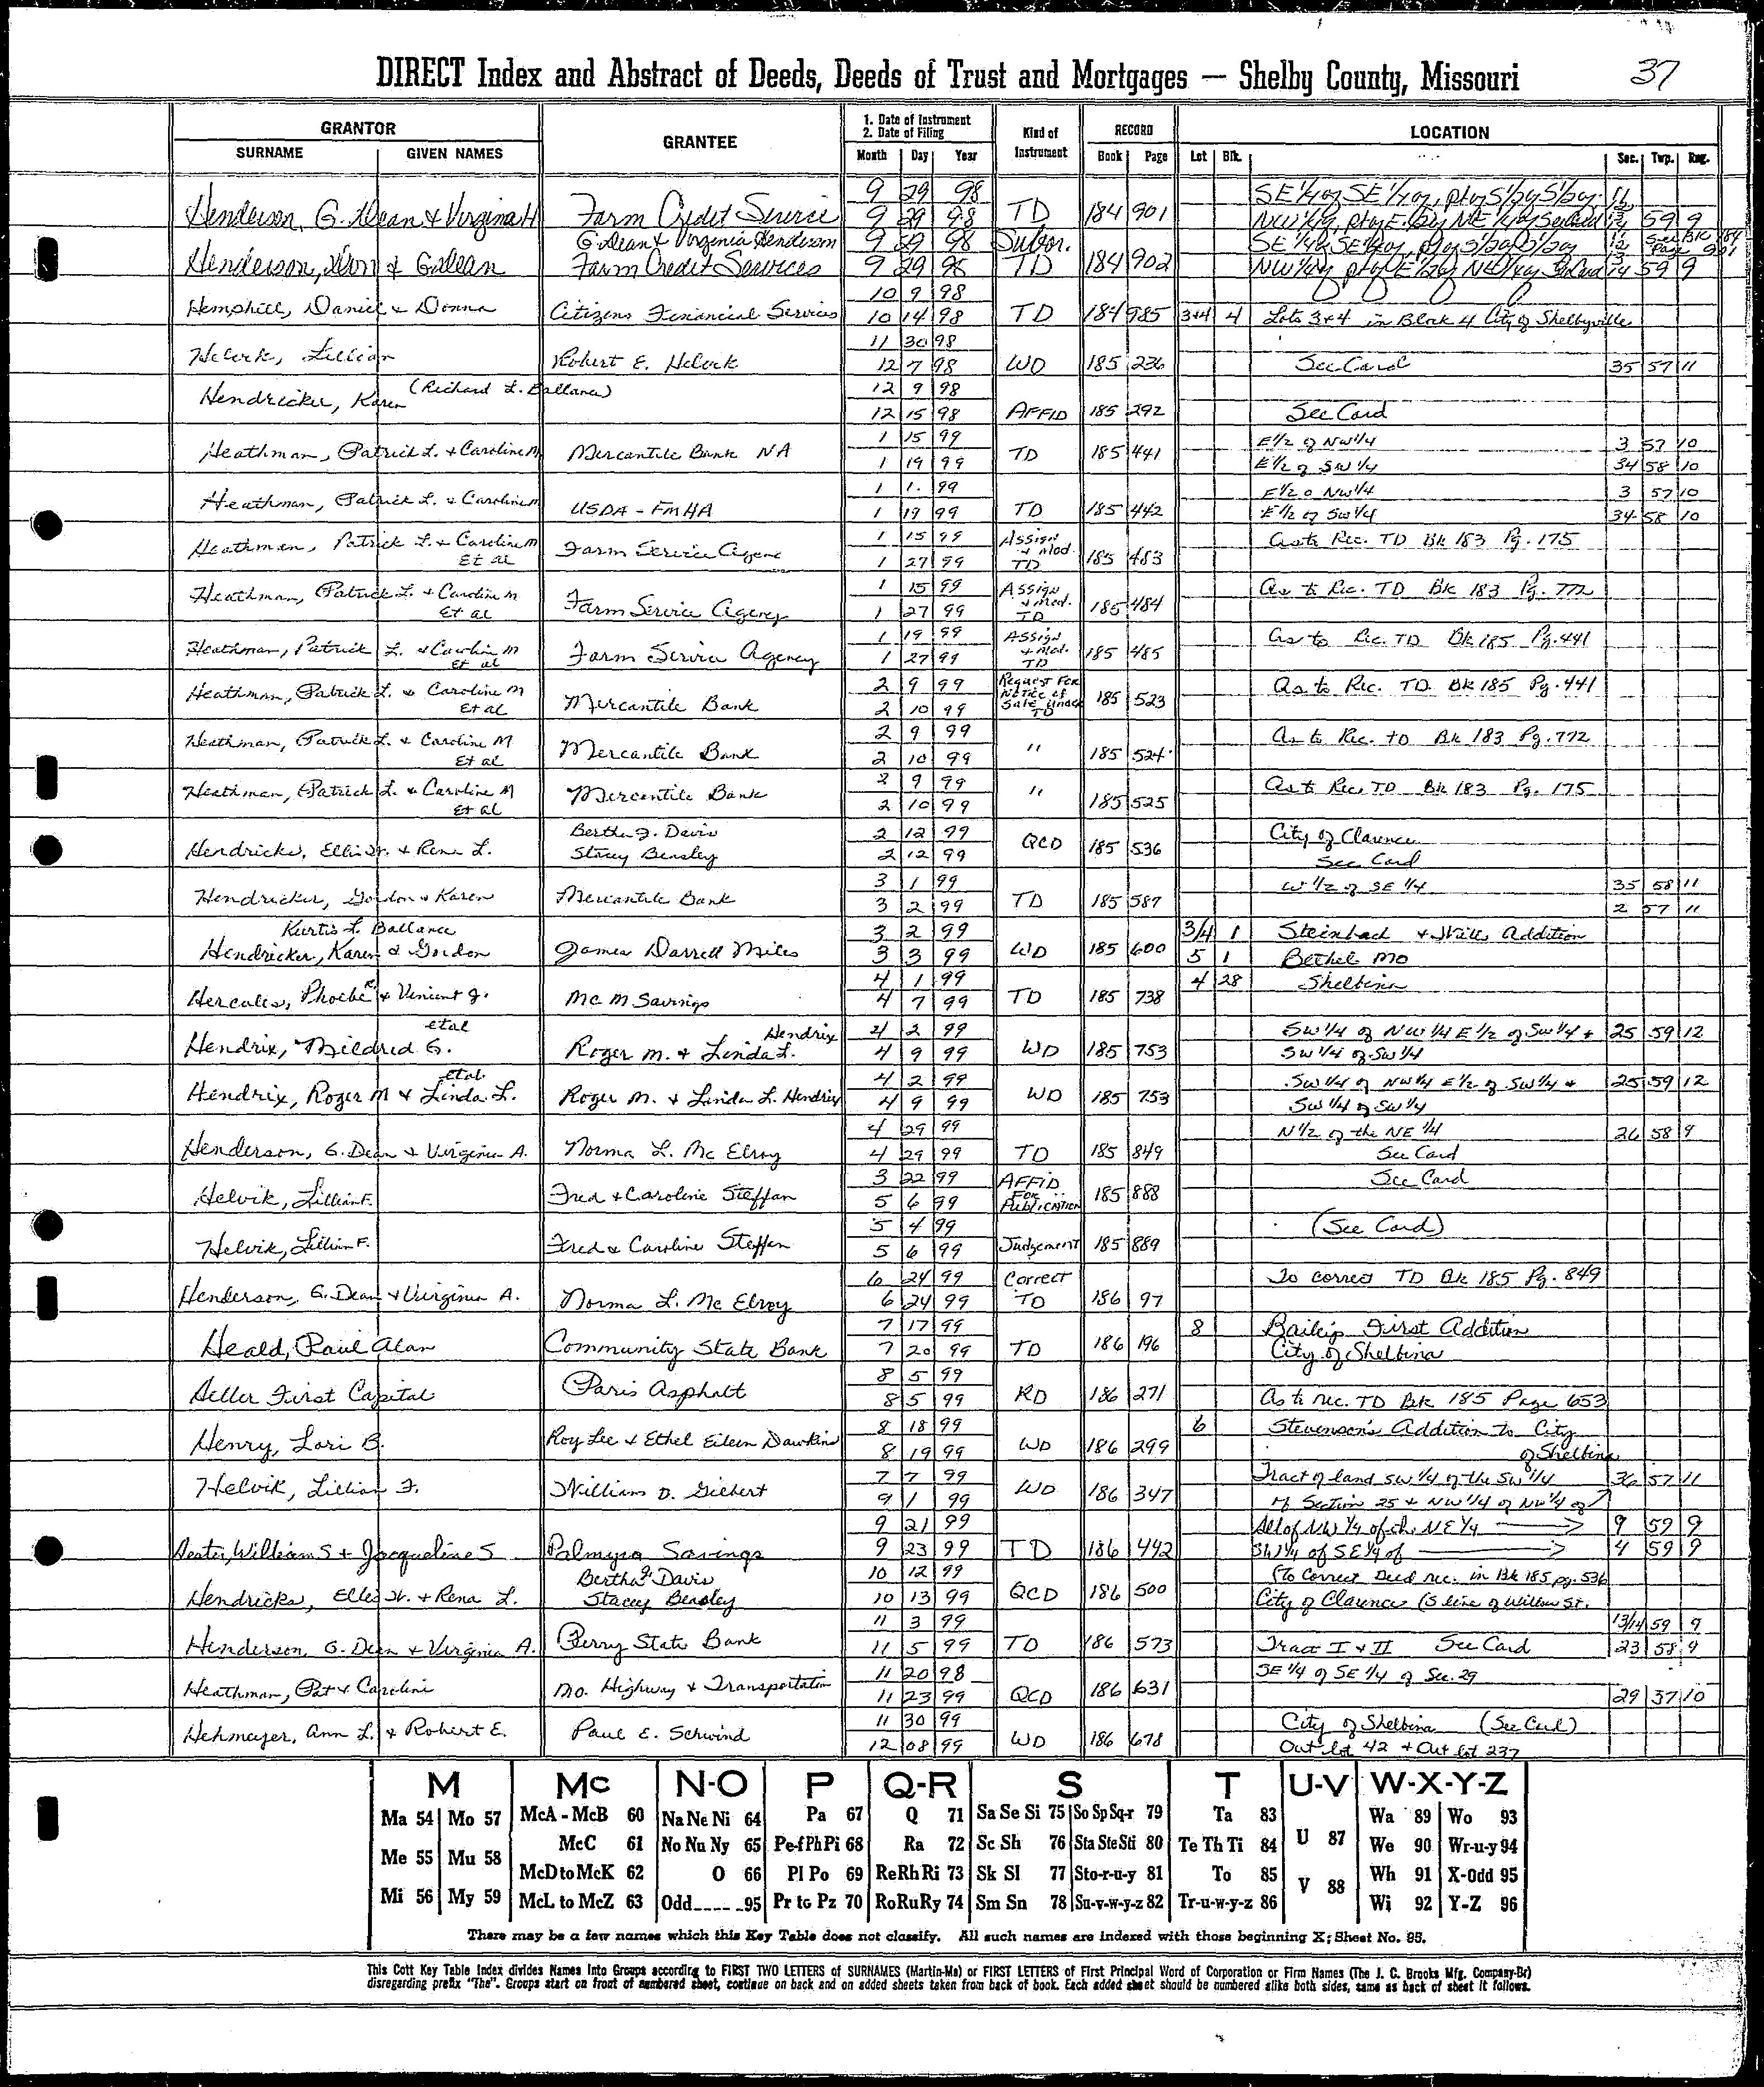 37
DIRECT Index and Abstract of Deeds, Deeds of Trust and Mortgages — Shelby County, Missouri
GRANTOR GRANTEE 1. Date of Instrument 2. Date of Filing Kind of Instrument RECORD LOCATION
SURNAME GIVEN NAMES Month Day Year Book Page Lot Blk. Sec. Twp. Rng.
9 29 98 SE 1/4 of SE 1/4 of, pt of S 1/2 of S 1/2 of
Henderson, G. Dean & Virginia H Farm Credit Service 9 29 98 TD 184 901 NW 1/4 59 9
G. Dean & Virginia Henderson 9 29 98 Subor. SE 1/4 of SE 1/4 of
Henderson, & G. Dean Farm Credit Services 9 29 98 TD 184 902 14 59 9
10 9 98
Hemphill, Daniel & Donna Citizens Financial Services 10 14 98 TD 184 985 3+4 4 Lots 3+4 in Block 4 City of Shelbyville
11 30 98
Lillian Robert E. 12 7 98 WD 185 236 See Card 35 57 11
(Richard L. Ballance) 12 9 98
Hendricker, Karen 12 15 98 AFFID 185 292 See Card
1 15 99 E 1/2 of NW 1/4 3 57 10
Heathman, Patrick L. & Caroline M Mercantile Bank NA 1 19 99 TD 185 441 E 1/2 of SW 1/4 34 58 10
1 1. 99 E 1/2 o NW 1/4 3 57 10
Heathman, Patrick L. & Caroline M USDA - FMHA 1 19 99 TD 185 442 E 1/2 of SW 1/4 34 58 10
Heathman, Patrick L. & Caroline M 1 15 99 Assign & Mod. As to Rec. TD Bk 183 Pg. 175
Et al Farm Service Agenc 1 27 99 TD 185 483
Heathman, Patrick L. & Caroline M 1 15 99 Assign & Mod. As to Rec. TD Bk 183 Pg. 772
Et al Farm Service Agency 1 27 99 TD 185 484
Heathman, Patrick L. & Carolin M 1 19 99 Assign & Mod. As to Rec. TD Bk 185 Pg. 441
Et al Farm Service Agency 1 27 99 TD 185 485
Heathman, Patrick L. & Caroline M 2 9 99 Request For Notice of As to Rec. TD Bk 185 Pg. 441
Et al Mercantile Bank 2 10 99 Sale Under TD 185 523
Heathman, Patrick L. & Caroline M 2 9 99 As to Rec. TD Bk 183 Pg. 772
Et al Mercantile Bank 2 10 99 " 185 524
Heathman, Patrick L. & Caroline M 2 9 99 As to Rec. TD Bk 183 Pg. 175
Et al Mercantile Bank 2 10 99 " 185 525
Bertha J. Davis 2 12 99 City of Clarence
Hendricks, Ellis Jr. & Rena L. Stacey Beasley 2 12 99 QCD 185 536 See Card
3 1 99 W 1/2 of SE 1/4 35 58 11
Hendricker, Gordon & Karen Mercantile Bank 3 2 99 TD 185 587 2 57 11
Kurtis L. Ballance 3 2 99 3/4 1 Steinbach & Addition
Hendricker, Karen & Gordon James Darrell Miles 3 3 99 WD 185 600 5 1 Bethel MO
4 1 99 4 28 Shelbina
Hercules, Phoebe R & Vincent J. Mc M Savings 4 7 99 TD 185 738
etal Hendrix 4 2 99 SW 1/4 of NW 1/4 E 1/2 of SW 1/4 + 25 59 12
Hendrix, Mildred G. Roger M. & Linda L. 4 9 99 WD 185 753 SW 1/4 of SW 1/4
etal 4 2 99 SW 1/4 of NW 1/4 E 1/2 of SW 1/4 + 25 59 12
Hendrix, Roger M & Linda L. Roger M. & Linda L. Hendrix 4 9 99 WD 185 753 SW 1/4 of SW 1/4
4 29 99 N 1/2 of the NE 1/4 26 58 9
Henderson, G. Dean & Virginia A. Norma L. Mc Elroy 4 29 99 TD 185 849 See Card
3 22 99 AFFID See Card
Helvik, Lillian F. Fred & Caroline Steffan 5 6 99 For Publication 185 888
5 4 99 (See Card)
Helvik, Lillian F. Fred & Caroline Steffen 5 6 99 Judgement 185 889
6 24 99 Correct To correct TD Bk 185 Pg. 849
Henderson, G. Dean & Virginia A. Norma L. Mc Elroy 6 24 99 TD 186 97
7 17 99 8 First Addition
Heald, Paul Alan Community State Bank 7 20 99 TD 186 196 City of Shelbina
8 5 99
Heller First Capital Paris Asphalt 8 5 99 RD 186 271 As to rec. TD Bk 185 Page 653
8 18 99 6 Stevenson's Addition to City
Henry, Lori B. Roy Lee & Ethel Eileen Dawkins 8 19 99 WD 186 299 of Shelbina
7 7 99 Tract of land SW 1/4 of the SW 1/4 36 57 11
Helvik, Lillian F. William D. Gilbert 9 1 99 WD 186 347 of Section 25 + NW 1/4 of NW 1/4 of
9 21 99 All of NW 1/4 of the NE 1/4 9 59 9
Hester, William S & Jacqueline S Palmyra Savings 9 23 99 TD 186 442 SW 1/4 of SE 1/4 of 4 59 9
Bertha J. Davis 10 12 99 (To Correct Deed rec. in Bk 185 pg. 536
Hendricks, Ellis Jr. & Rena L. Stacey Beasley 10 13 99 QCD 186 500 City of Clarence (S line of Willow St.
11 3 99 13/14 59 9
Henderson, G. Dean & Virginia A. Perry State Bank 11 5 99 TD 186 573 Tract I & II See Card 23 58 9
11 20 98 SE 1/4 of SE 1/4 of Sec. 29
Heathman, Pat & Caroline Mo. Highway & Transportation 11 23 99 QCD 186 631 29 37 10
11 30 99 City of Shelbina (See Card)
Hehmeyer, Ann L. & Robert E. Paul E. Schwind 12 08 99 WD 186 678 Out lot 42 + Out lot 237
M Mc N-O P Q-R S T U-V W-X-Y-Z
Ma 54 Mo 57 McA - McB 60 Na Ne Ni 64 Pa 67 Q 71 Sa Se Si 75 So Sp Sq-r 79 Ta 83 U 87 Wa 89 Wo 93
Me 55 Mu 58 McC 61 No Nu Ny 65 Pe-f Ph Pi 68 Ra 72 Sc Sh 76 Sta Ste Sti 80 Te Th Ti 84 We 90 Wr-u-y 94
McD to McK 62 O 66 Pl Po 69 Re Rh Ri 73 Sk Sl 77 Sto-r-u-y 81 To 85 V 88 Wh 91 X-Odd 95
Mi 56 My 59 McL to McZ 63 Odd 95 Pr to Pz 70 Ro Ru Ry 74 Sm Sn 78 Su-v-w-y-z 82 Tr-u-w-y-z 86 Wi 92 Y-Z 96
There may be a few names which this Key Table does not classify. All such names are indexed with those beginning X; Sheet No. 95.
This Cott Key Table Index divides Names Into Groups according to FIRST TWO LETTERS of SURNAMES (Martin-Ma) or FIRST LETTERS of First Principal Word of Corporation or Firm Names (The J. C. Brooks Mfg. Company-Br)
disregarding prefix "The". Groups start on front of numbered sheet, continue on back and on added sheets taken from back of book. Each added sheet should be numbered alike both sides, same as back of sheet it follows.